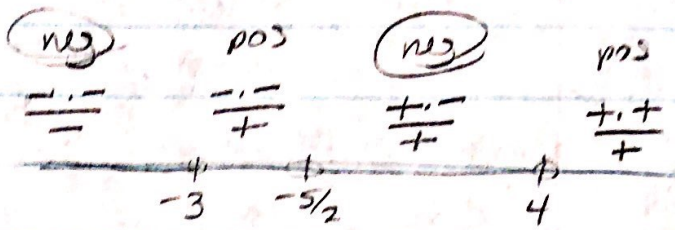 neg pos neg pos
-·-/- -·-/+ +·-/+ +·+/+
-3 -5/2 4